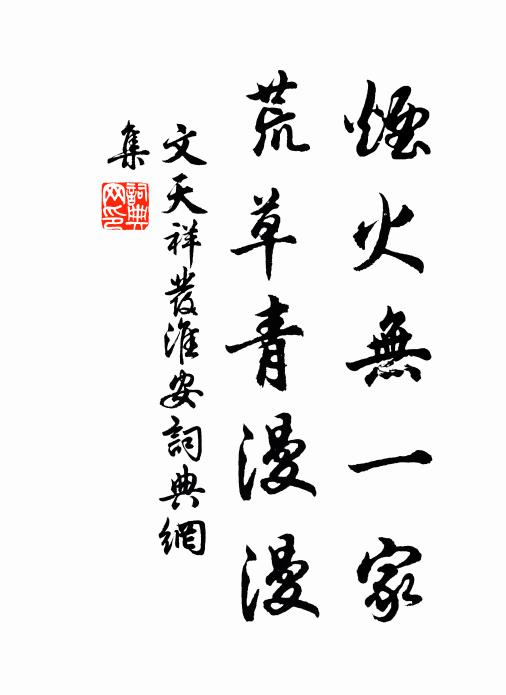 煙火無一家
荒草青漫漫
文天祥發淮安詞典網
集
詞典網印